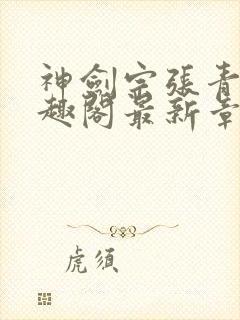 神劍宗張青
趣閣最新章
虎須